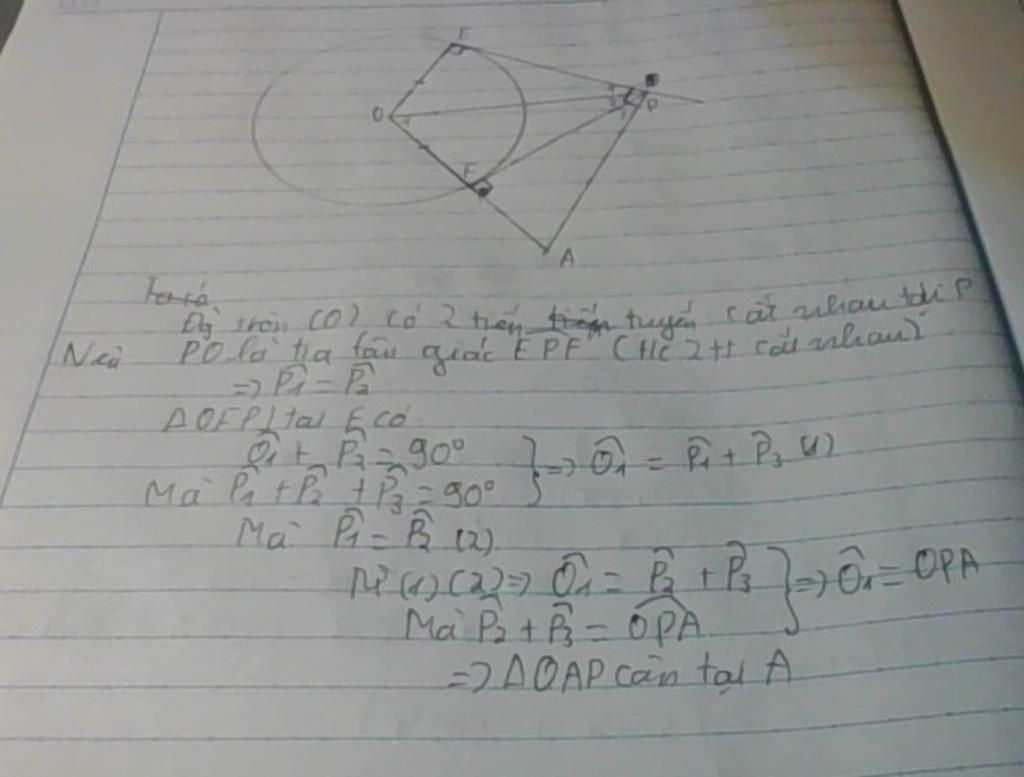 E
O
P
F
A
Ta có
Đg tròn (O) có 2 tiếp tuyến cắt nhau tại P
Nên PO là tia fân giác EPF (t/c 2tt cắt nhau)
=> P̂1 = P̂2
ΔOFP ⊥ tại F có
Ô1 + P̂2 = 90°
Mà P̂1 + P̂2 + P̂3 = 90° } => Ô1 = P̂1 + P̂3 (1)
Mà P̂1 = P̂2 (2)
Từ (1) (2) => Ô1 = P̂2 + P̂3
Mà P̂2 + P̂3 = OPA } => Ô1 = OPA
=> ΔOAP cân tại A